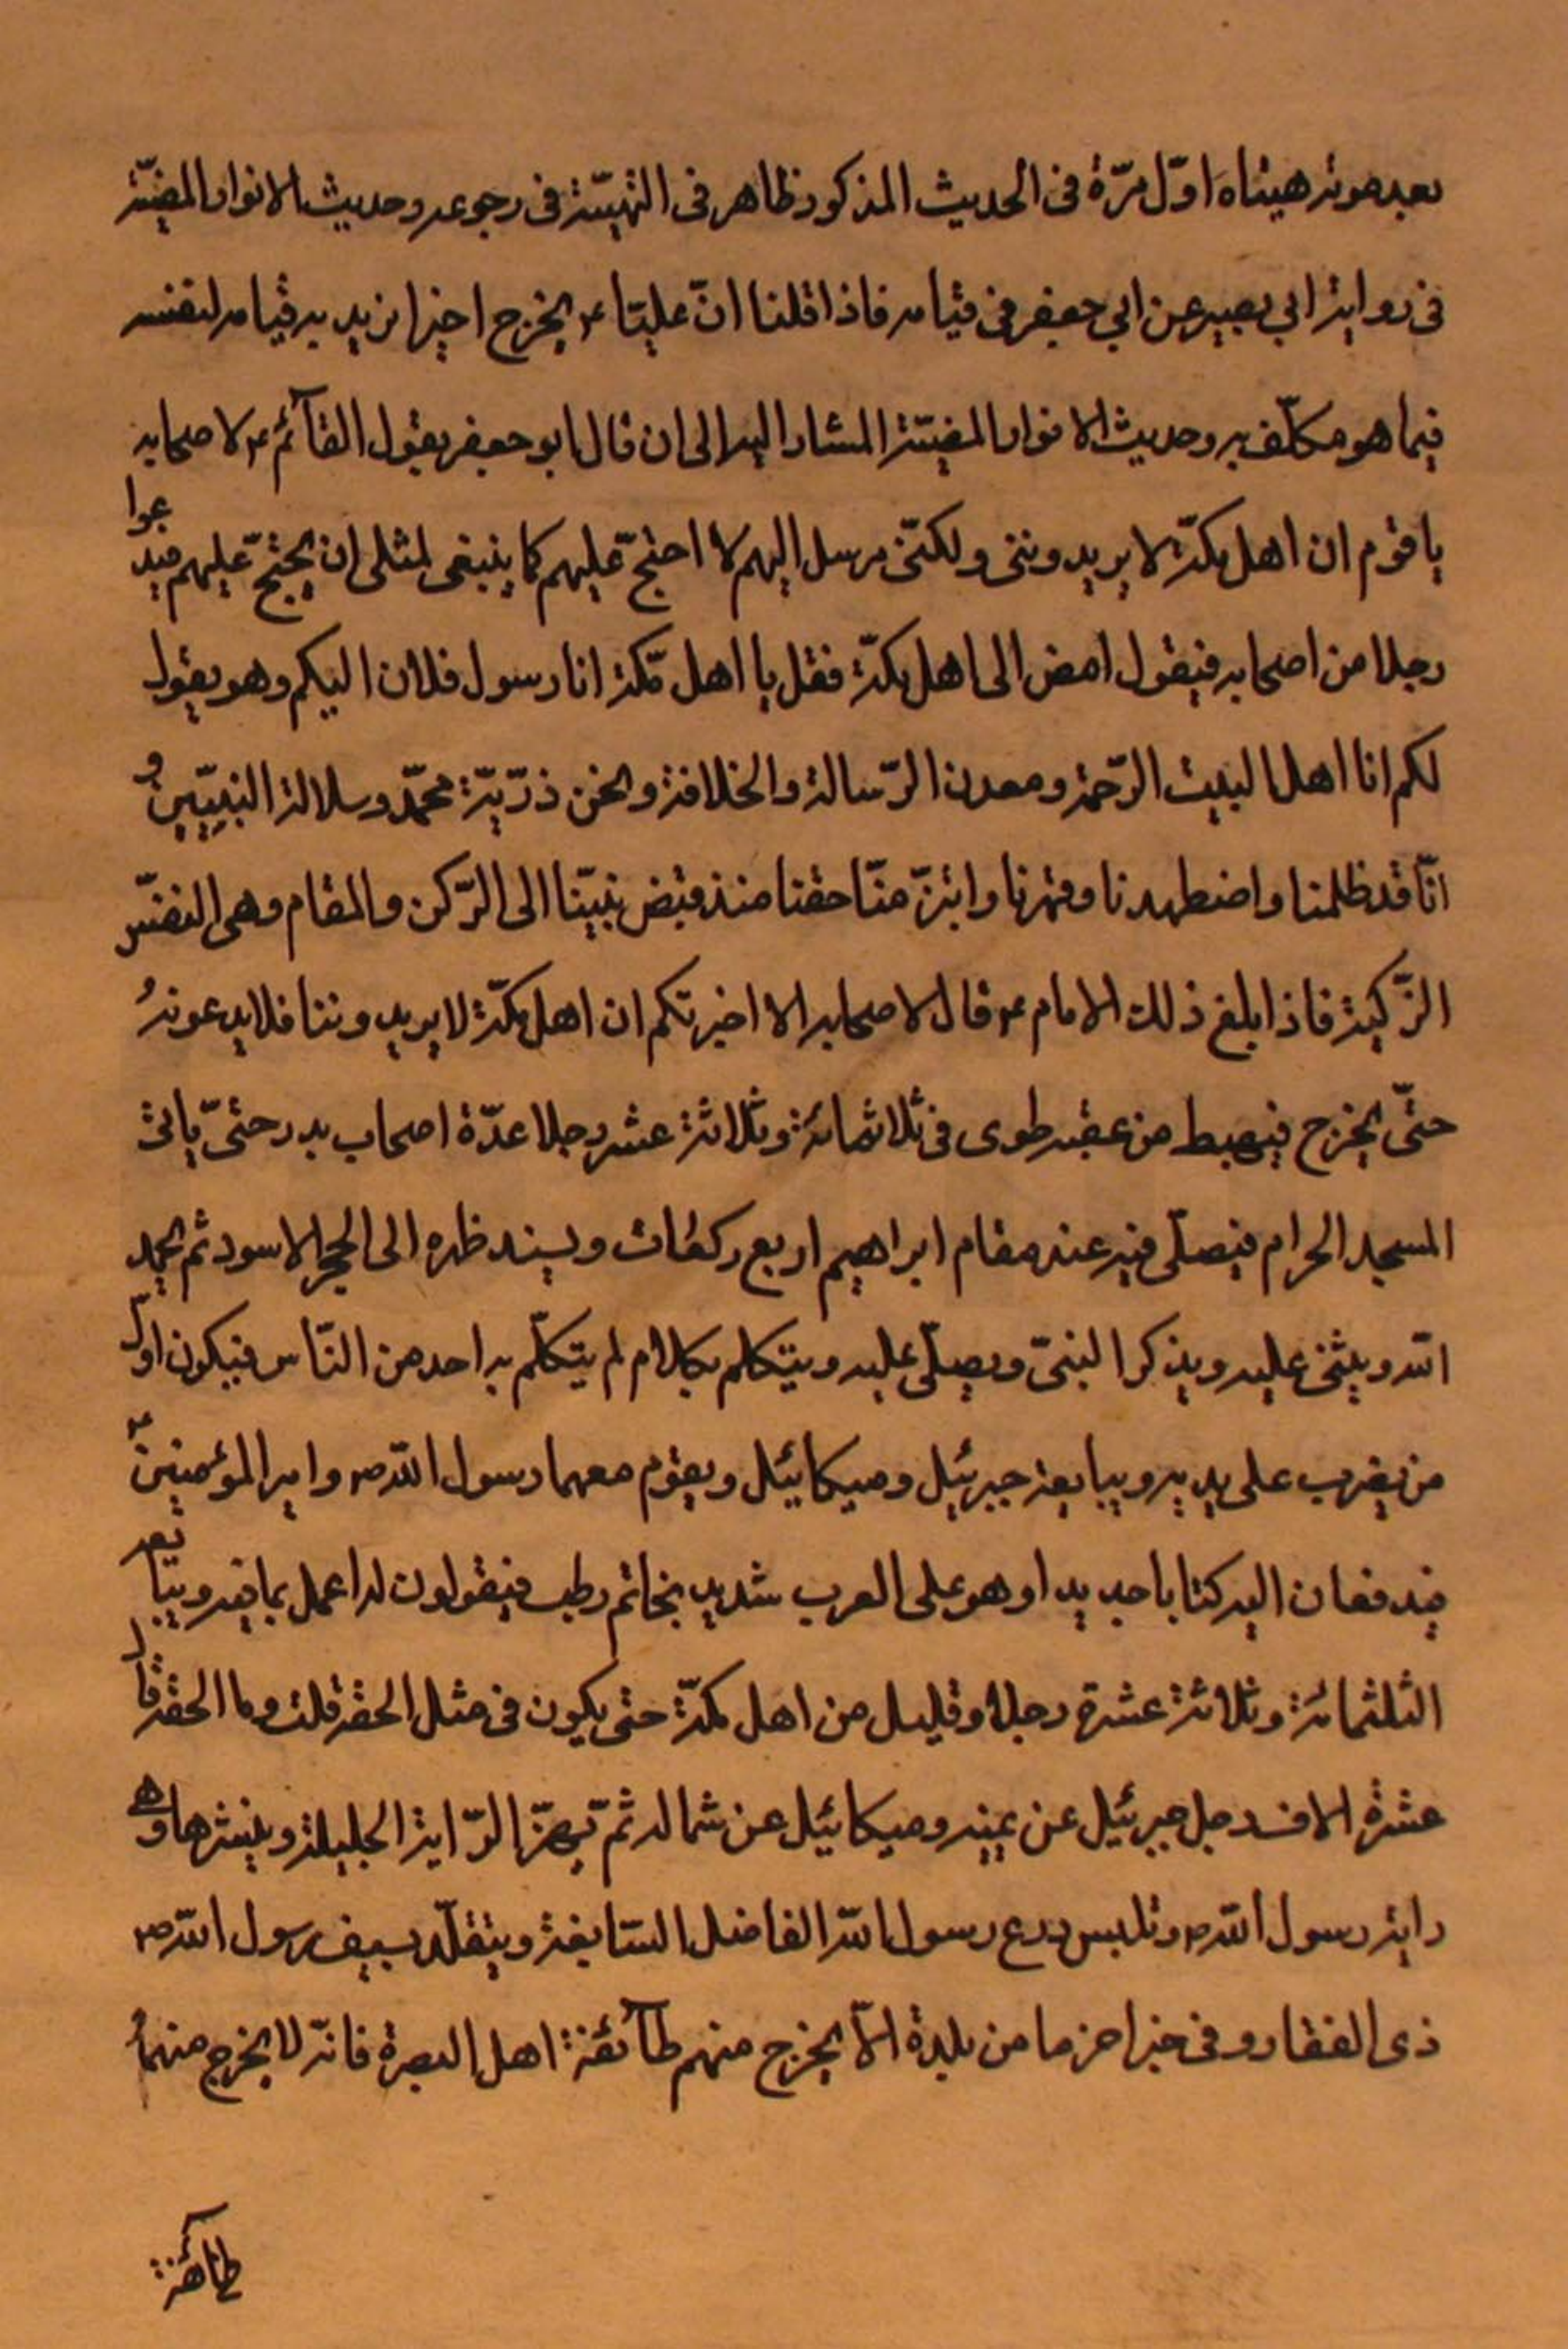 بعد موته هيئاه اوّل مرّة فى الحديث المذكور ظاهر فى التهيّئة فى رجوعه وحديث الانوار المضيّئة
فى رواية ابي بصير عن ابي جعفر فى قيامه فاذا قلنا انّ عليّا ع يخرج اخيرا نريد به قيامه لنفسه
فيما هو مكلّف به وحديث الانوار المضيّئة المشار اليه الى ان قال ابو جعفر يقول القآئم ع لاصحابه
يا قوم ان اهل مكّة لا يريدوننى ولكنّى مرسل اليهم لا احتجّ عليهم كما ينبغى لمثلى ان يحتجّ عليهم فيدعوا
رجلا من اصحابه فيقول امض الى اهل مكّة فقل يا اهل مّكة انا رسول فلان اليكم وهو يقول
لكم انا اهل البيت الرّحمة ومعدن الرّسالة والخلافة ونحن ذرّيّة محمّد وسلالة النبيّين و
انّا قد ظلمنا واضطهدنا وقهرنا وابتزّ منّا حقنا منذ قبض نبيّنا الى الرّكن والمقام وهى النفّس
الزّكية فاذا بلغ ذلك الامام ع قال لاصحابه الا اخبرتكم ان اهل مكّة لا يريدوننا فلا يدعونهُ
حتّى يخرج فيهبط من عقبه طوى فى ثلاثمائة وثلاثة عشر رجلا عدّة اصحاب بدر حتىّ ياتى
المسجد الحرام فيصلّى فيه عند مقام ابراهيم اربع ركعات ويسند ظهره الى الحجر الاسود ثم يحمد
اللّه ويثنى عليه ويذكر النبىّ ويصلّى عليه ويتكلم بكلام لم يتكلّم به احد من النّاس فيكون اوّل
من يضرب على يديه ويبايعه جبرئيل وميكائيل ويقوم معهما رسول اللّه ص وامير المؤمنين ع
فيدفعان اليه كتابا جديدا وهو على العرب شديد بخاتم رطب فيقولون له اعمل بما فيه ويبايعه
الثلثمائة وثلاثة عشرة رجلا وقليل من اهل مكّة حتى يكون فى مثل الحلقة قلت وما الحلقة قال
عشرة الاف رجل جبرئيل عن يمينه وميكائيل عن شماله ثمّ يهزّ الرّاية الجليلة وينشرها وهى
راية رسول اللّه ص وتلبس درع رسول اللّه الفاضل السّابغة ويتقلّد بسيف رسول اللّه ص
ذى الفقار وفى خبر اخر ما من بلدة الاّ يخرج منهم طآئفة اهل البصرة فانّه لا يخرج منهمُ
طآئفة